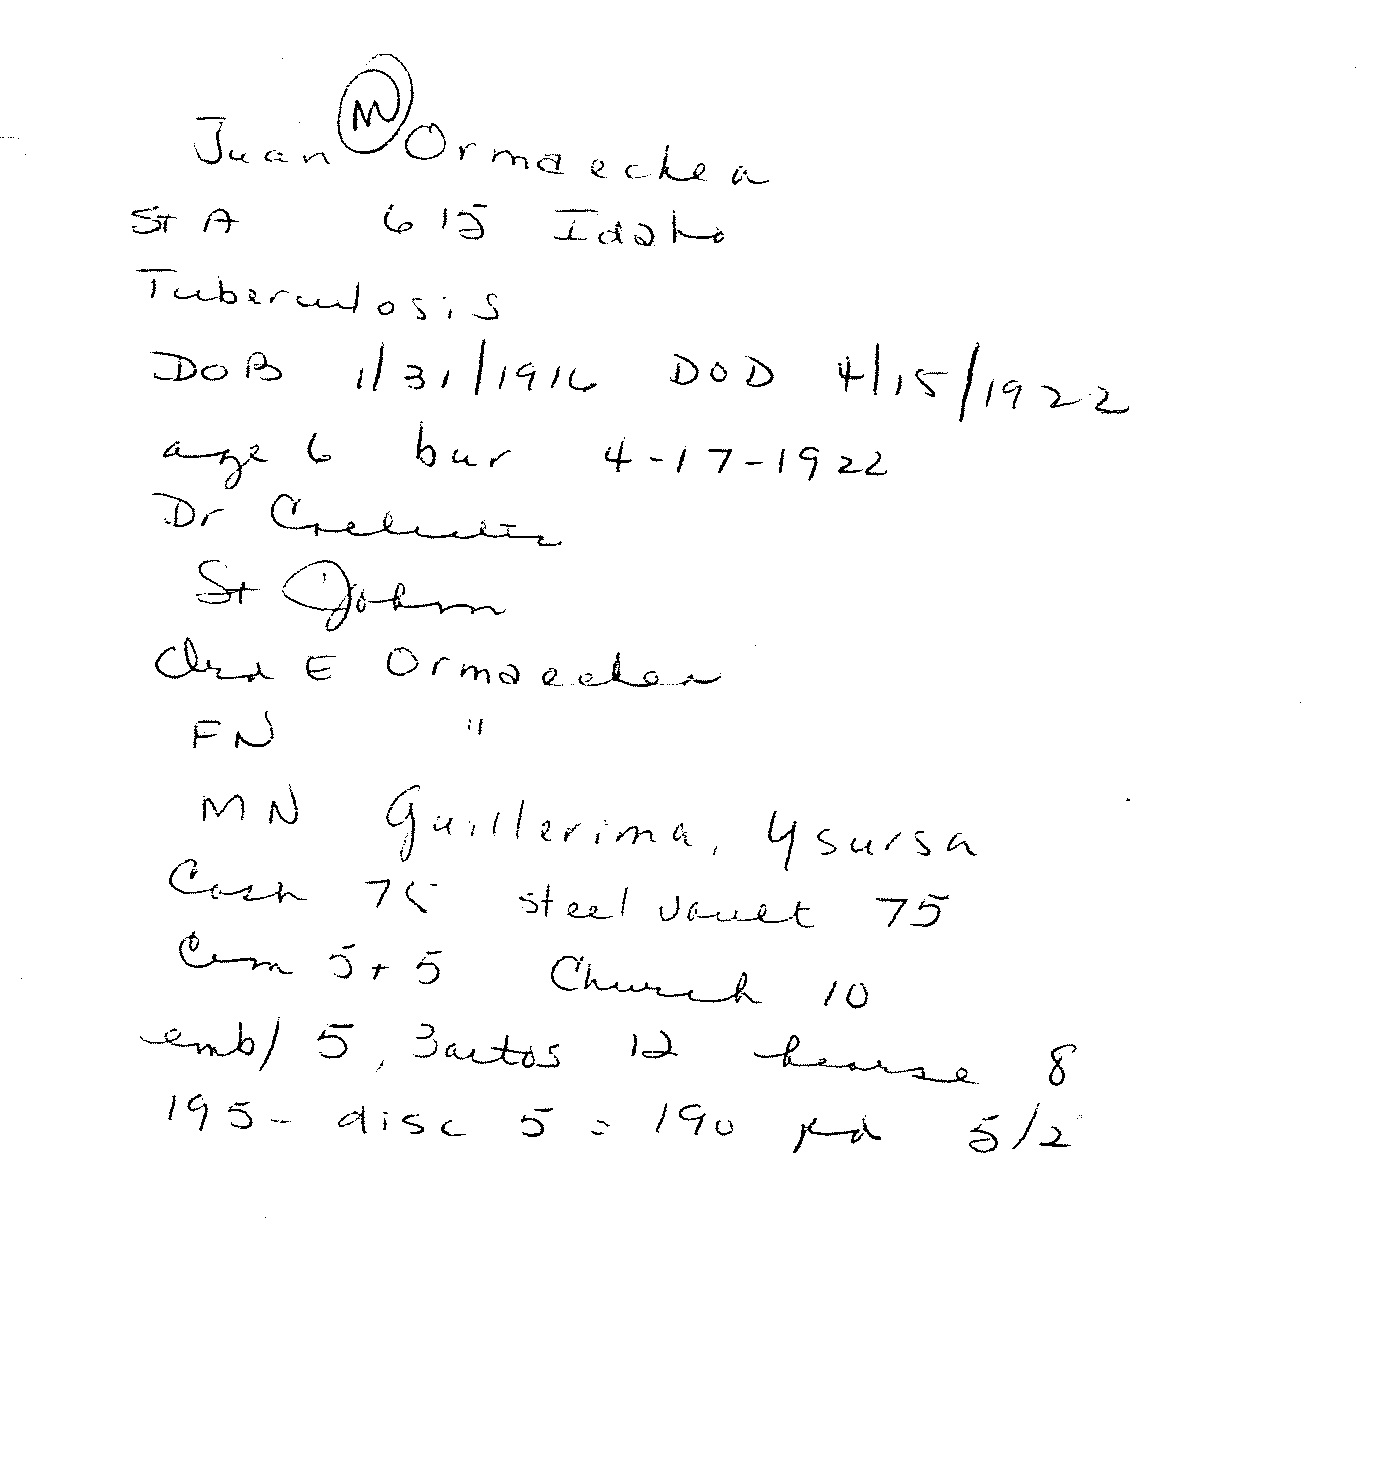 Juan M Ormaechea
St A 615 Idaho
Tuberculosis
DOB 1/31/1916 DOD 4/15/1922
age 6 bur 4-17-1922
Dr
St John
Ord E Ormaechea
FN "
MN Guillerima, Ysursa
Cash 75 steel vault 75
Cem 5+5 Church 10
emb/ 5, 3 autos 12 hearse 8
195- disc 5 = 190 pd 5/2